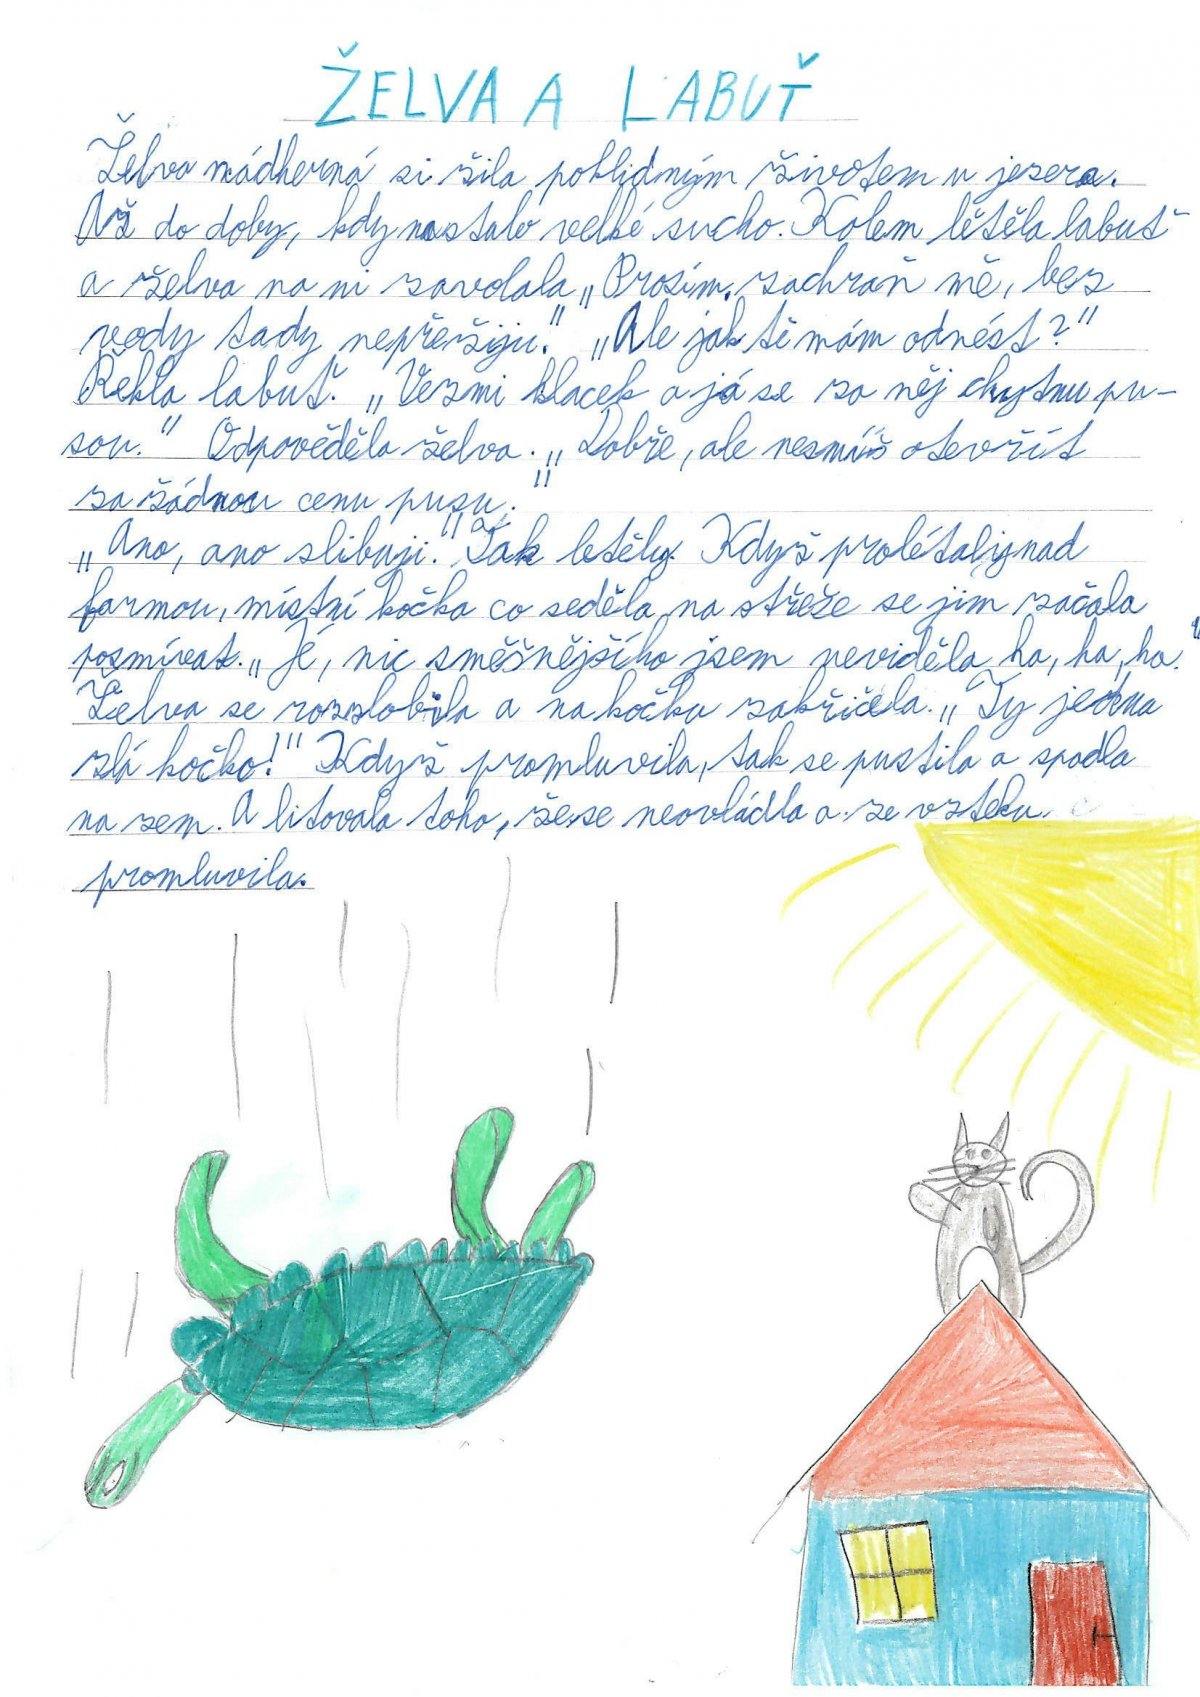 ŽELVA A LABUŤ
Želva nádherná si žila poklidným životem u jezera.
Až do doby, kdy nastalo velké sucho. Kolem létěla labuť
a želva na ni zavolala „Prosím, zachraň mě, bez
vody tady nepřežiju." „Ale jak tě mám odnést?"
Řekla labuť. „Vezmi klacek a já se za něj chytnu pu-
sou." Odpověděla želva. „Dobře, ale nesmíš otevřít
za žádnou cenu pusu."
„Ano, ano slibuji." Tak letěly. Když prolétaly nad
farmou, místní kočka co seděla na střeže se jim začala
posmívat. „Jé, nic směšnějšího jsem neviděla ha, ha, ha."
Želva se rozzlobila a na kočku zakřičela. „Ty jedna
zlá kočko!" Když promluvila, tak se pustila a spadla
na zem. A litovala toho, že se neovládla a ze vzteku
promluvila.